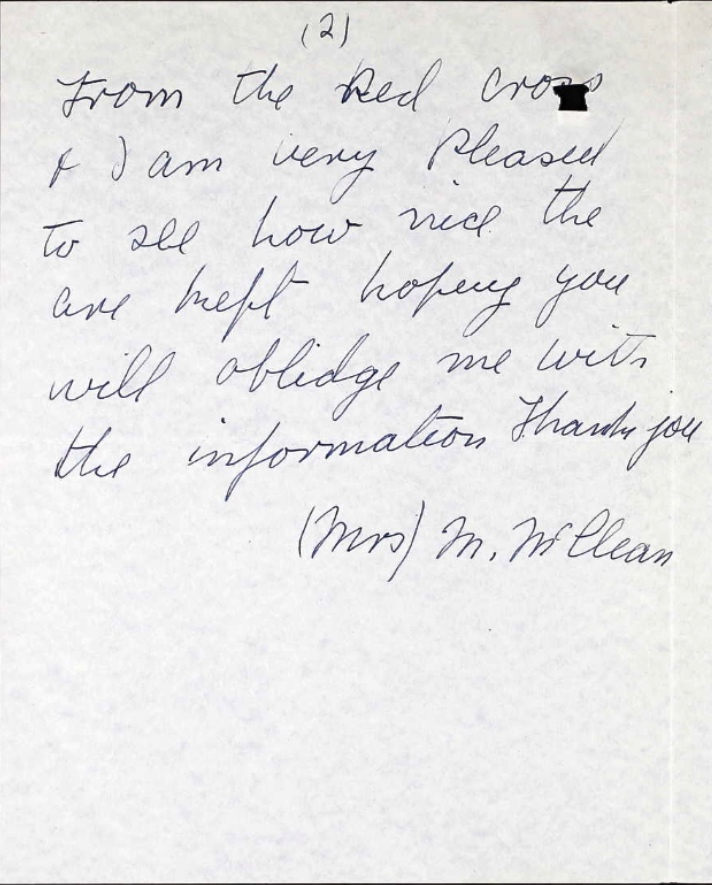 (2)
From the Red Cross
& I am very pleased
to see how nice the
are kept hopeing you
will oblidge me with
the information Thank you
(Mrs) M. McClean